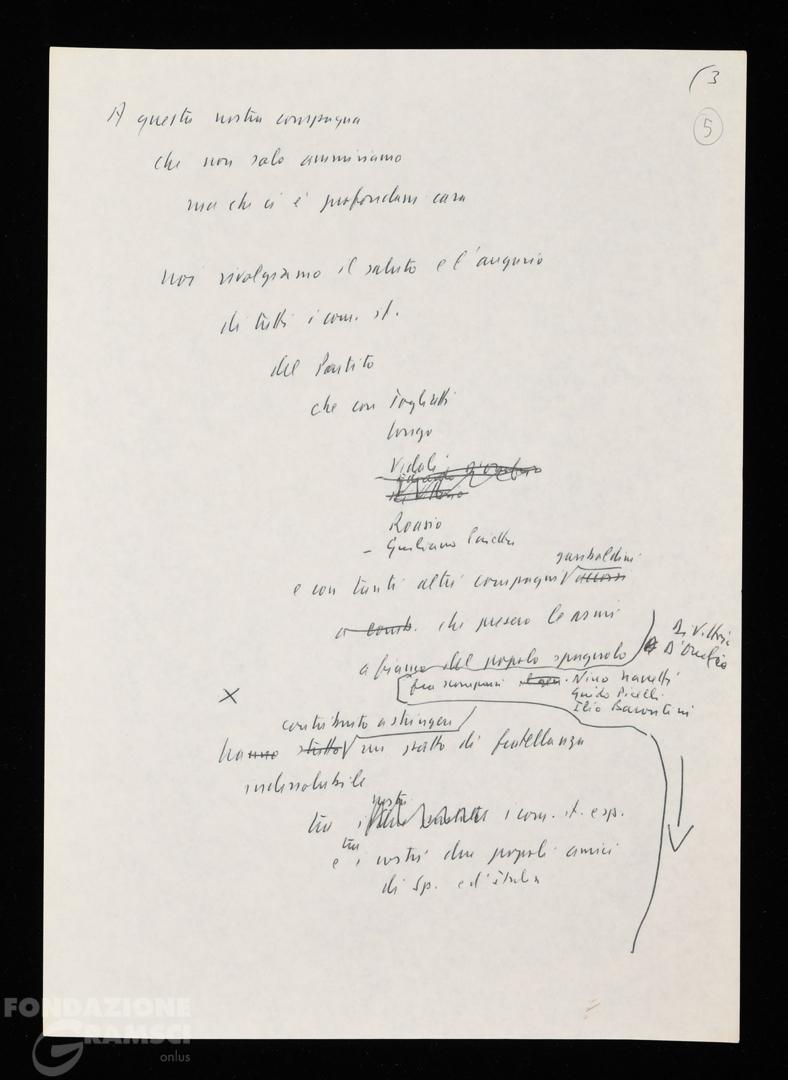 (3
5
A questa nostra compagna
che non solo ammiriamo
ma che ci è profondam cara
noi rivolgiamo il saluto e l'augurio
di tutti i com. it.
del Partito
che con Togliatti
Longo
Vidali
Di Vittorio
Roasio
- Giuliano Pajetta
garibaldini
e con tanti altri compagni √ accorsi
a comb. che presero le armi
a fianco del popolo spagnolo
Di Vittorio
D'Onofrio
fra scomparsi Nino Nanetti
Guido Picelli
Ilio Barontini
X
contribuito a stringere
hanno √ un patto di fratellanza
indissolubile
nostri
tra i i com. it. e sp.
tra
e i nostri due popoli amici
di Sp. e d'Italia
FONDAZIONE
GRAMSCI
onlus